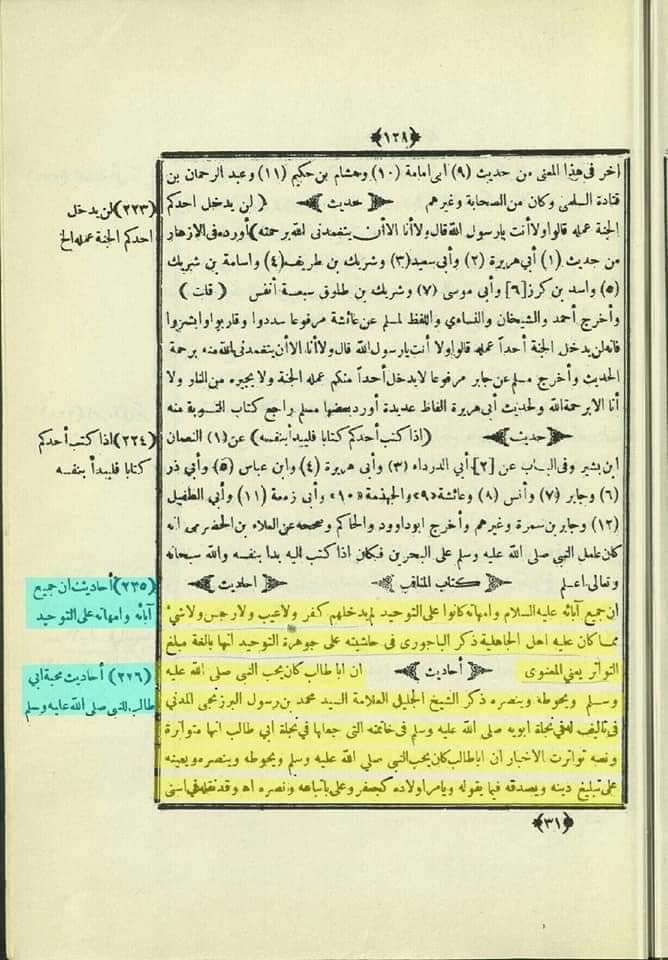 ﴿١٢٨﴾
اخر فى هذا المعنى من حديث (٩) أبى امامة (١٠) وهشام بن حكيم (١١) وعبد الرحمان بن
قتادة السلمى وكان من الصحابة وغيرهم ﴿ حديث ﴾ (لن يدخل احدكم
(٢٢٣) لن يدخل
احدكم الجنة عمله الخ
الجنة عمله قالوا ولا أنت يارسول الله قال ولا أنا الا أن يتغمدنى الله برحمته) أورده فى الازهار
من حديث (١) أبي هريرة (٢) وأبى سعيد (٣) وشريك بن طريف (٤) واسامة بن شريك
(٥) واسد بن كرز [٦] وأبى موسى (٧) وشريك بن طارق سبعة أنفس (قلت)
وأخرج أحمد والشيخان والنساءي واللفظ لمسلم عن عائشة مرفوعا سددوا وقاربوا وابشروا
فانه لن يدخل الجنة أحداً عمله قالوا ولا أنت يارسول الله قال ولا أنا الا أن يتغمدنى الله منه برحمة
الحديث وأخرج مسلم عن جابر مرفوعا لايدخل أحداً منكم عمله الجنة ولا يجيره من النار ولا
أنا الا برحمة الله ولحديث أبى هريرة الفاظ عديدة أورد بعضها مسلم راجع كتاب التوبة منه
﴿ حديث ﴾ (اذا كتب أحدكم كتابا فليبدأ بنفسه) عن (١) النعمان
(٢٢٤) اذا كتب أحدكم
كتابا فليبدأ بنفسه
ابن بشير وفى الباب عن [٢] أبي الدرداء (٣) وأبى هريرة (٤) وابن عباس (٥) وأبي ذر
(٦) وجابر (٧) وأنس (٨) وعائشة «٩» والجهذمة «١٠» وأبى زمعة (١١) وأبي الطفيل
(١٢) وجابر بن سمرة وغيرهم وأخرج ابو داوود والحاكم وصححه عن العلاء بن الحضرمى انه
كان عامل النبي صلى الله عليه وسلم على البحرين فكان اذا كتب اليه بدا بنفسه والله سبحانه
وتعالى اعلم ﴿ كتاب المناقب ﴾ ﴿ احاديث ﴾
(٢٣٥) أحاديث ان جميع
آبائه وامهاته على التوحيد
ان جميع آبائه عليه السلام وامهاته كانوا على التوحيد لم يدخلهم كفر ولا عيب ولا رجس ولا شيئ
مما كان عليه اهل الجاهلية ذكر الباجورى فى حاشيته على جوهرة التوحيد انها بالغة مبلغ
التواتر يعني المعنوى ﴿ أحاديث ﴾ ان ابا طالب كان يحب النبي صلى الله عليه
(٢٢٦) أحاديث محبة ابي
طالب للنبى صلى الله عليه وسلم
وسلم ويحوطه وينصره ذكر الشيخ الجليل العلامة السيد محمد بن رسول البرزنجى المدني
فى تاليف له في نجاة ابويه صلى الله عليه وسلم فى خاتمته التى جعلها فى نجاة ابي طالب انها متواترة
ونصه تواترت الاخبار ان ابا طالب كان يحب النبي صلى الله عليه وسلم ويحوطه وينصره ويعينه
على تبليغ دينه ويصدقه فيما يقوله ويامر اولاده كجعفر وعلى باتباعه ونصره اه وقد نقله في اسنى
﴿٣١﴾